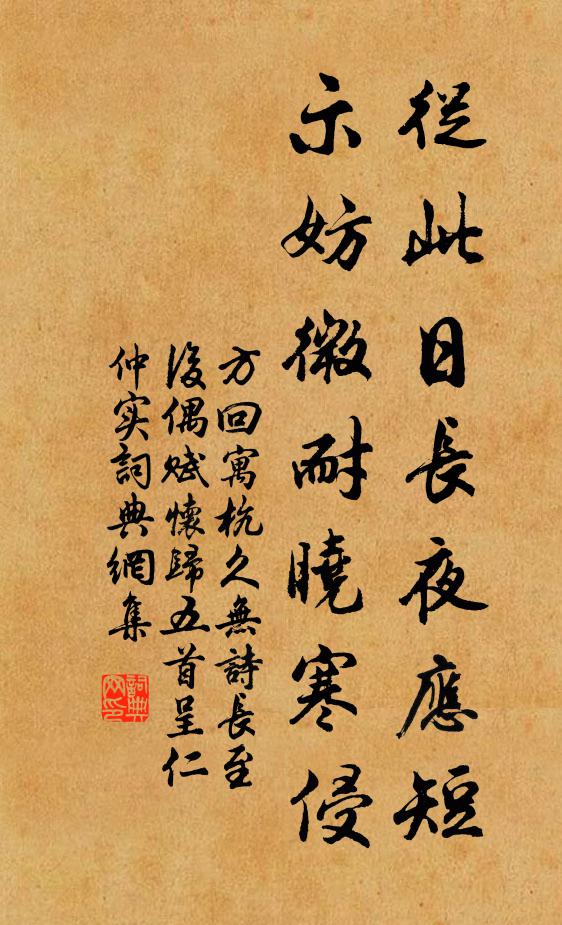 從此日長夜應短
示妨微耐曉寒侵
方回寓杭久無詩長至
後偶賦懷歸五首呈仁
仲实詞典網集
詞典
网印